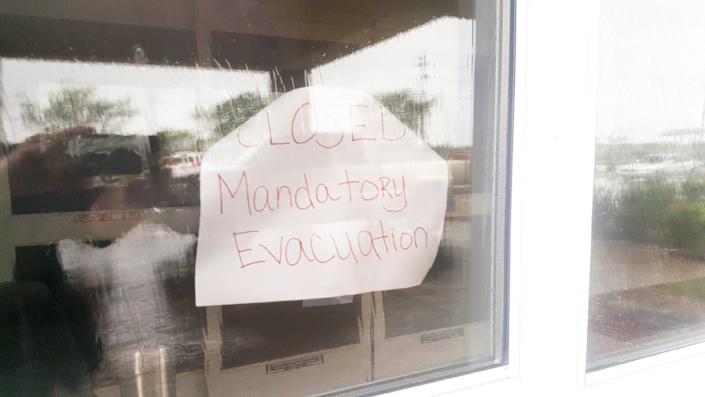 CLOSED
Mandatory
Evacuation